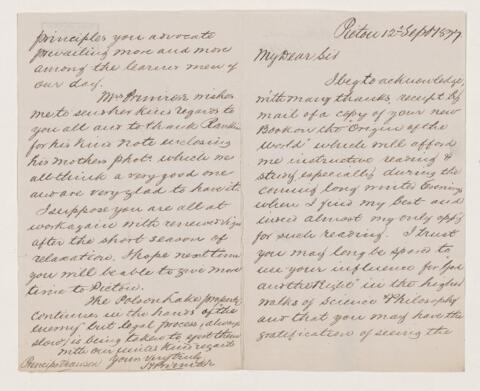 Pictou 12th Sept 1877
My Dear Sir
I beg to acknowledge,
with many thanks, receipt by
mail of a copy of your new
Book on the "Origin of the
World" which will afford
me instructive reading &
study especially during the
coming long winter Evenings
when I find my best and
indeed almost my only oppy
for such reading. I trust
you may long be spared to
use your influence for "God
and the Right" in the higher
walks of Science & Philosophy
and that you may have the
gratification of seeing the
principles you advocate
prevailing more and more
among the learned men of
our day.
Mrs Primrose wishes
me to send her kind regards to
you all and to thank Rankine
for his kind note enclosing
his mothers phot. which we
all think a very good one
and are very glad to have it.
I suppose you are all at
work again with renewed vigor
after the short season of
relaxation. I hope next time
you will be able to give more
time to Pictou.
The Polson Lake property
continues in the hands of "the
enemy" but legal process (always
slow) is being taken to eject them
With our united kind regards
Yours very truly
H Primrose
Principal Dawson